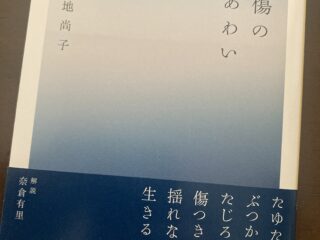 傷の
あわい
地尚子
たゆた
ぶつか
たじろ
傷つき
揺れな
生きる
解説
奈倉有里